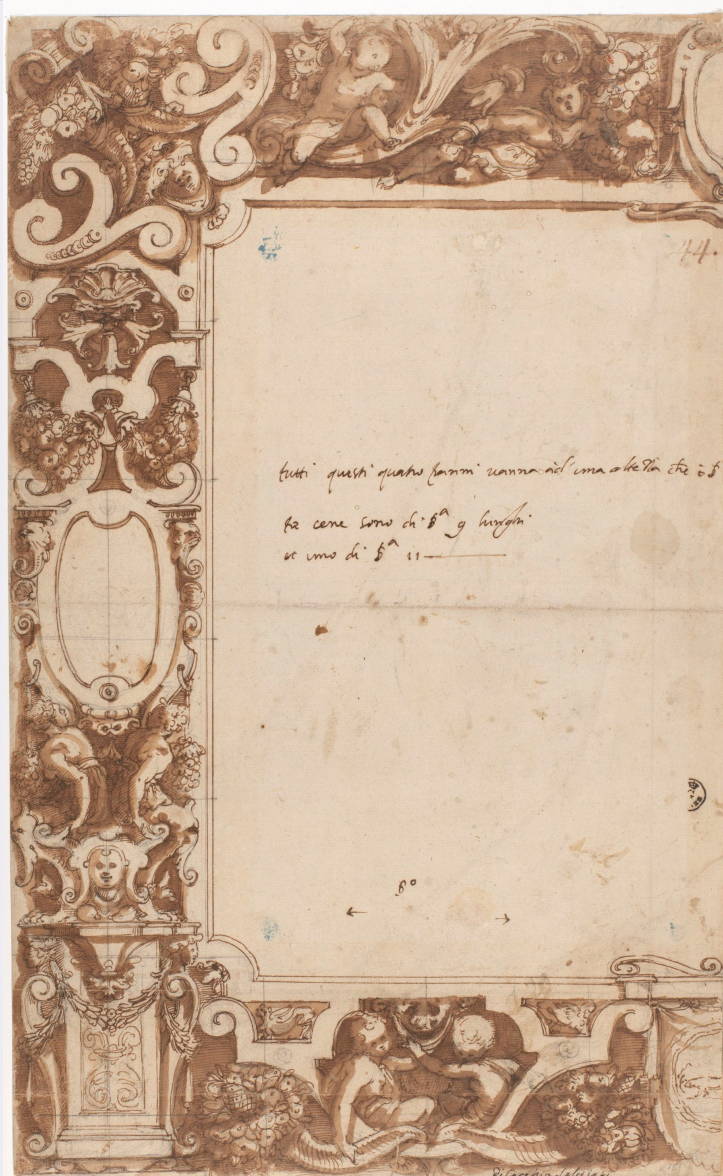 44.
tutti questi quatro panni vanno ad una alteza che è
tre cene sono di βª 9 lunghi
et uno di βª 11
βº